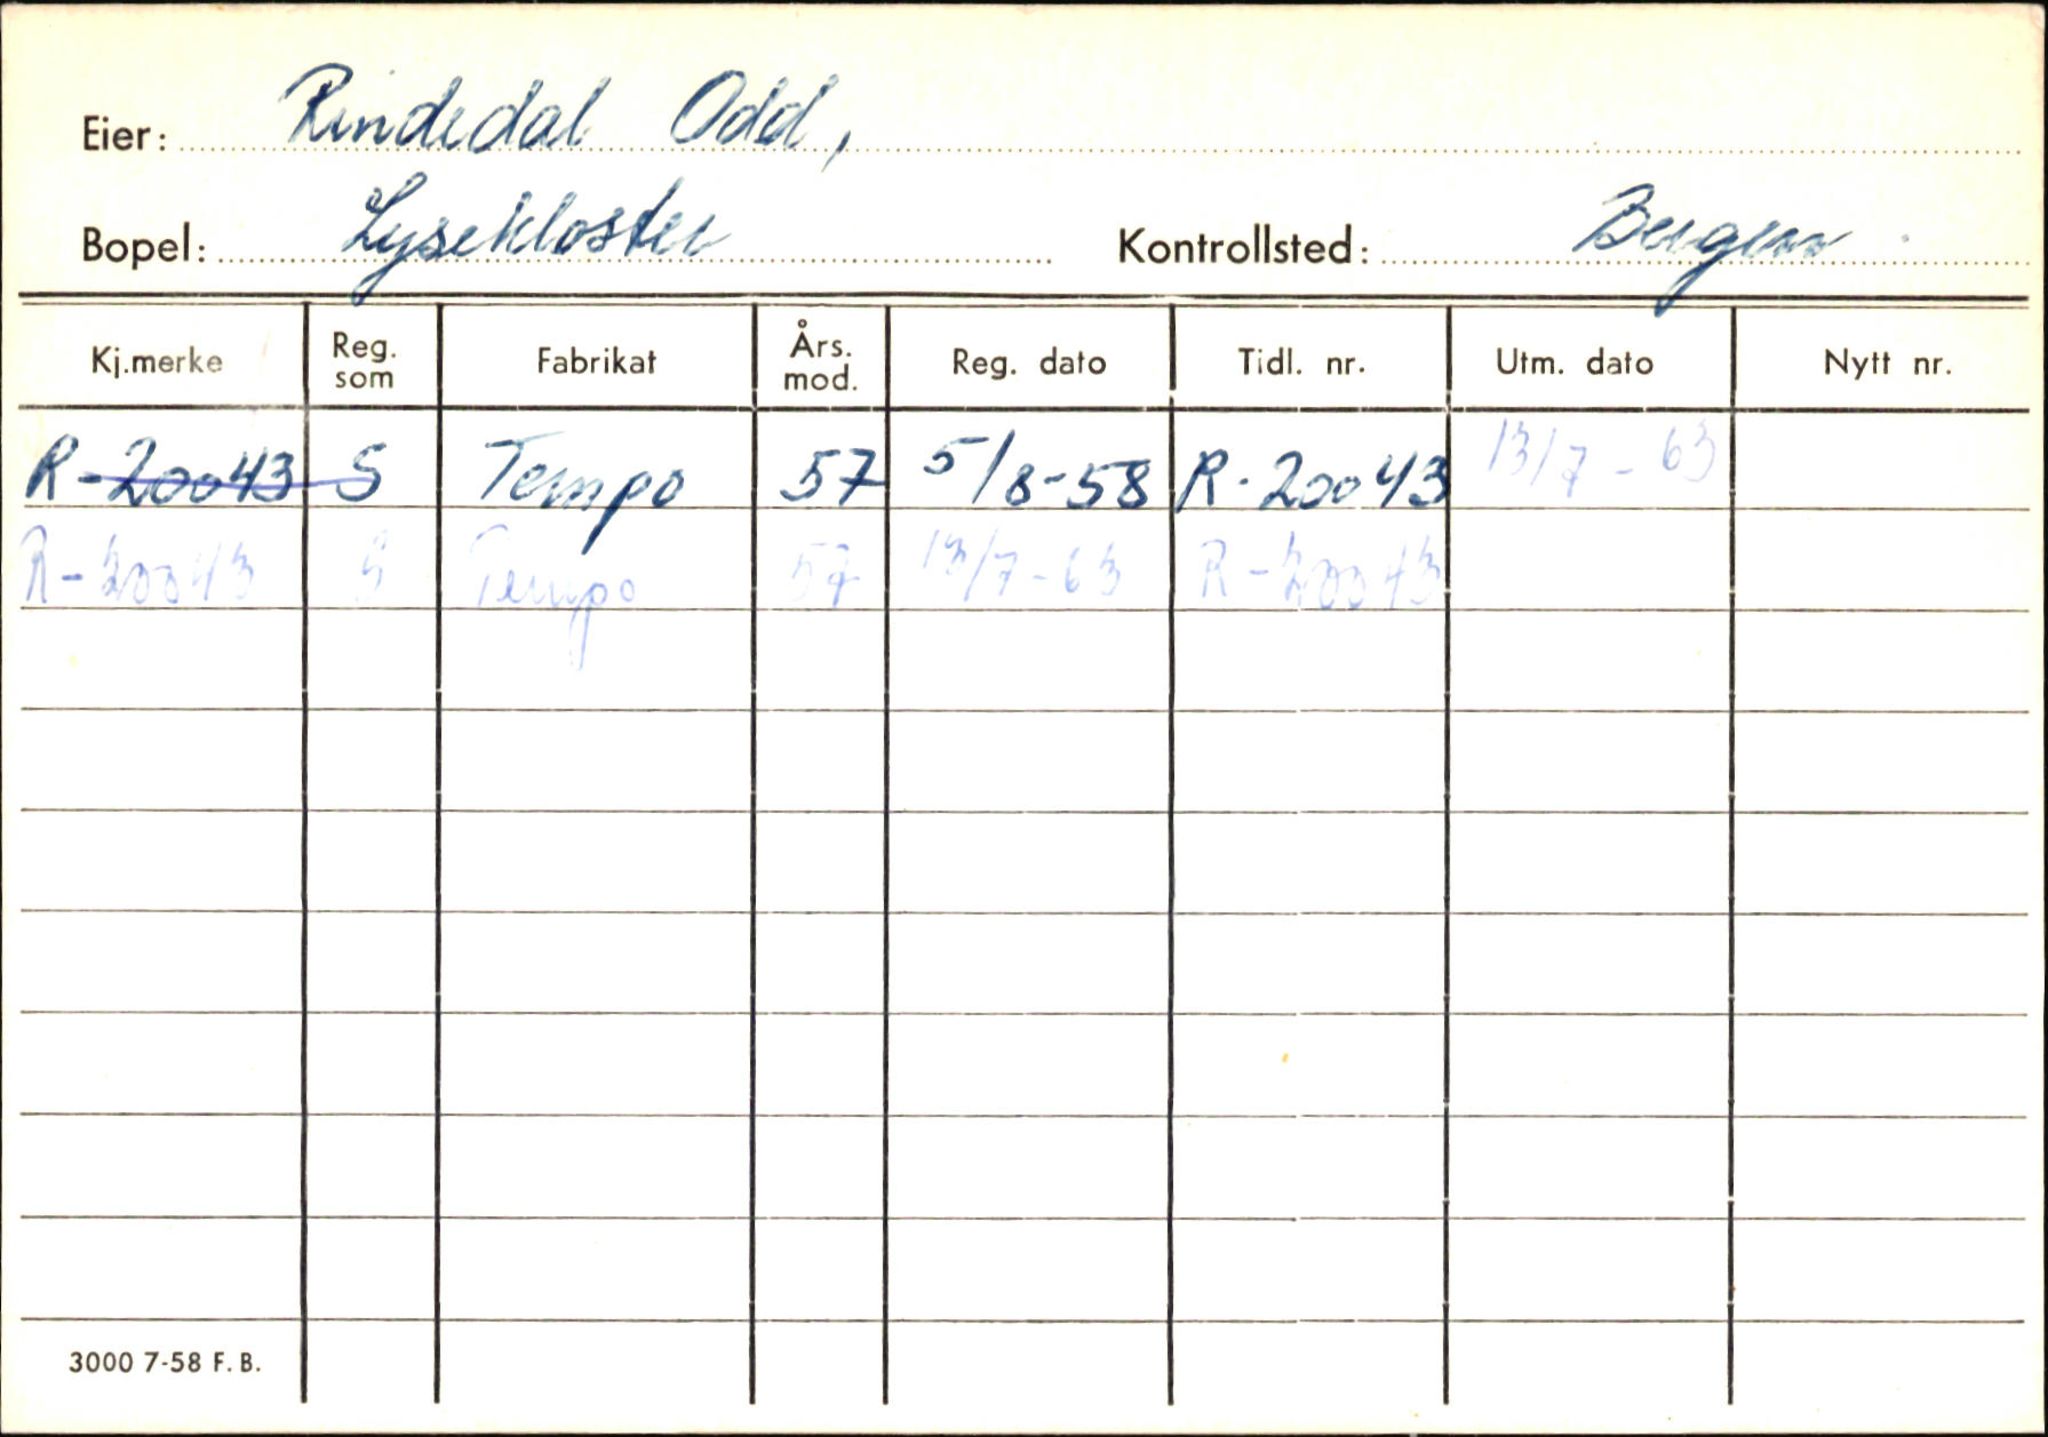 Eier: Rindedal Odd,
Bopel: Lysekloster Kontrollsted: Bergen
Kj.merke Reg. som Fabrikat Års. mod. Reg. dato Tidl. nr. Utm. dato Nytt nr.
R-20043 S Tempo 57 5/8-58 R-20043 13/7-63
R-20043 S Tempo 57 13/7-63 R-20043
3000 7-58 F. B.